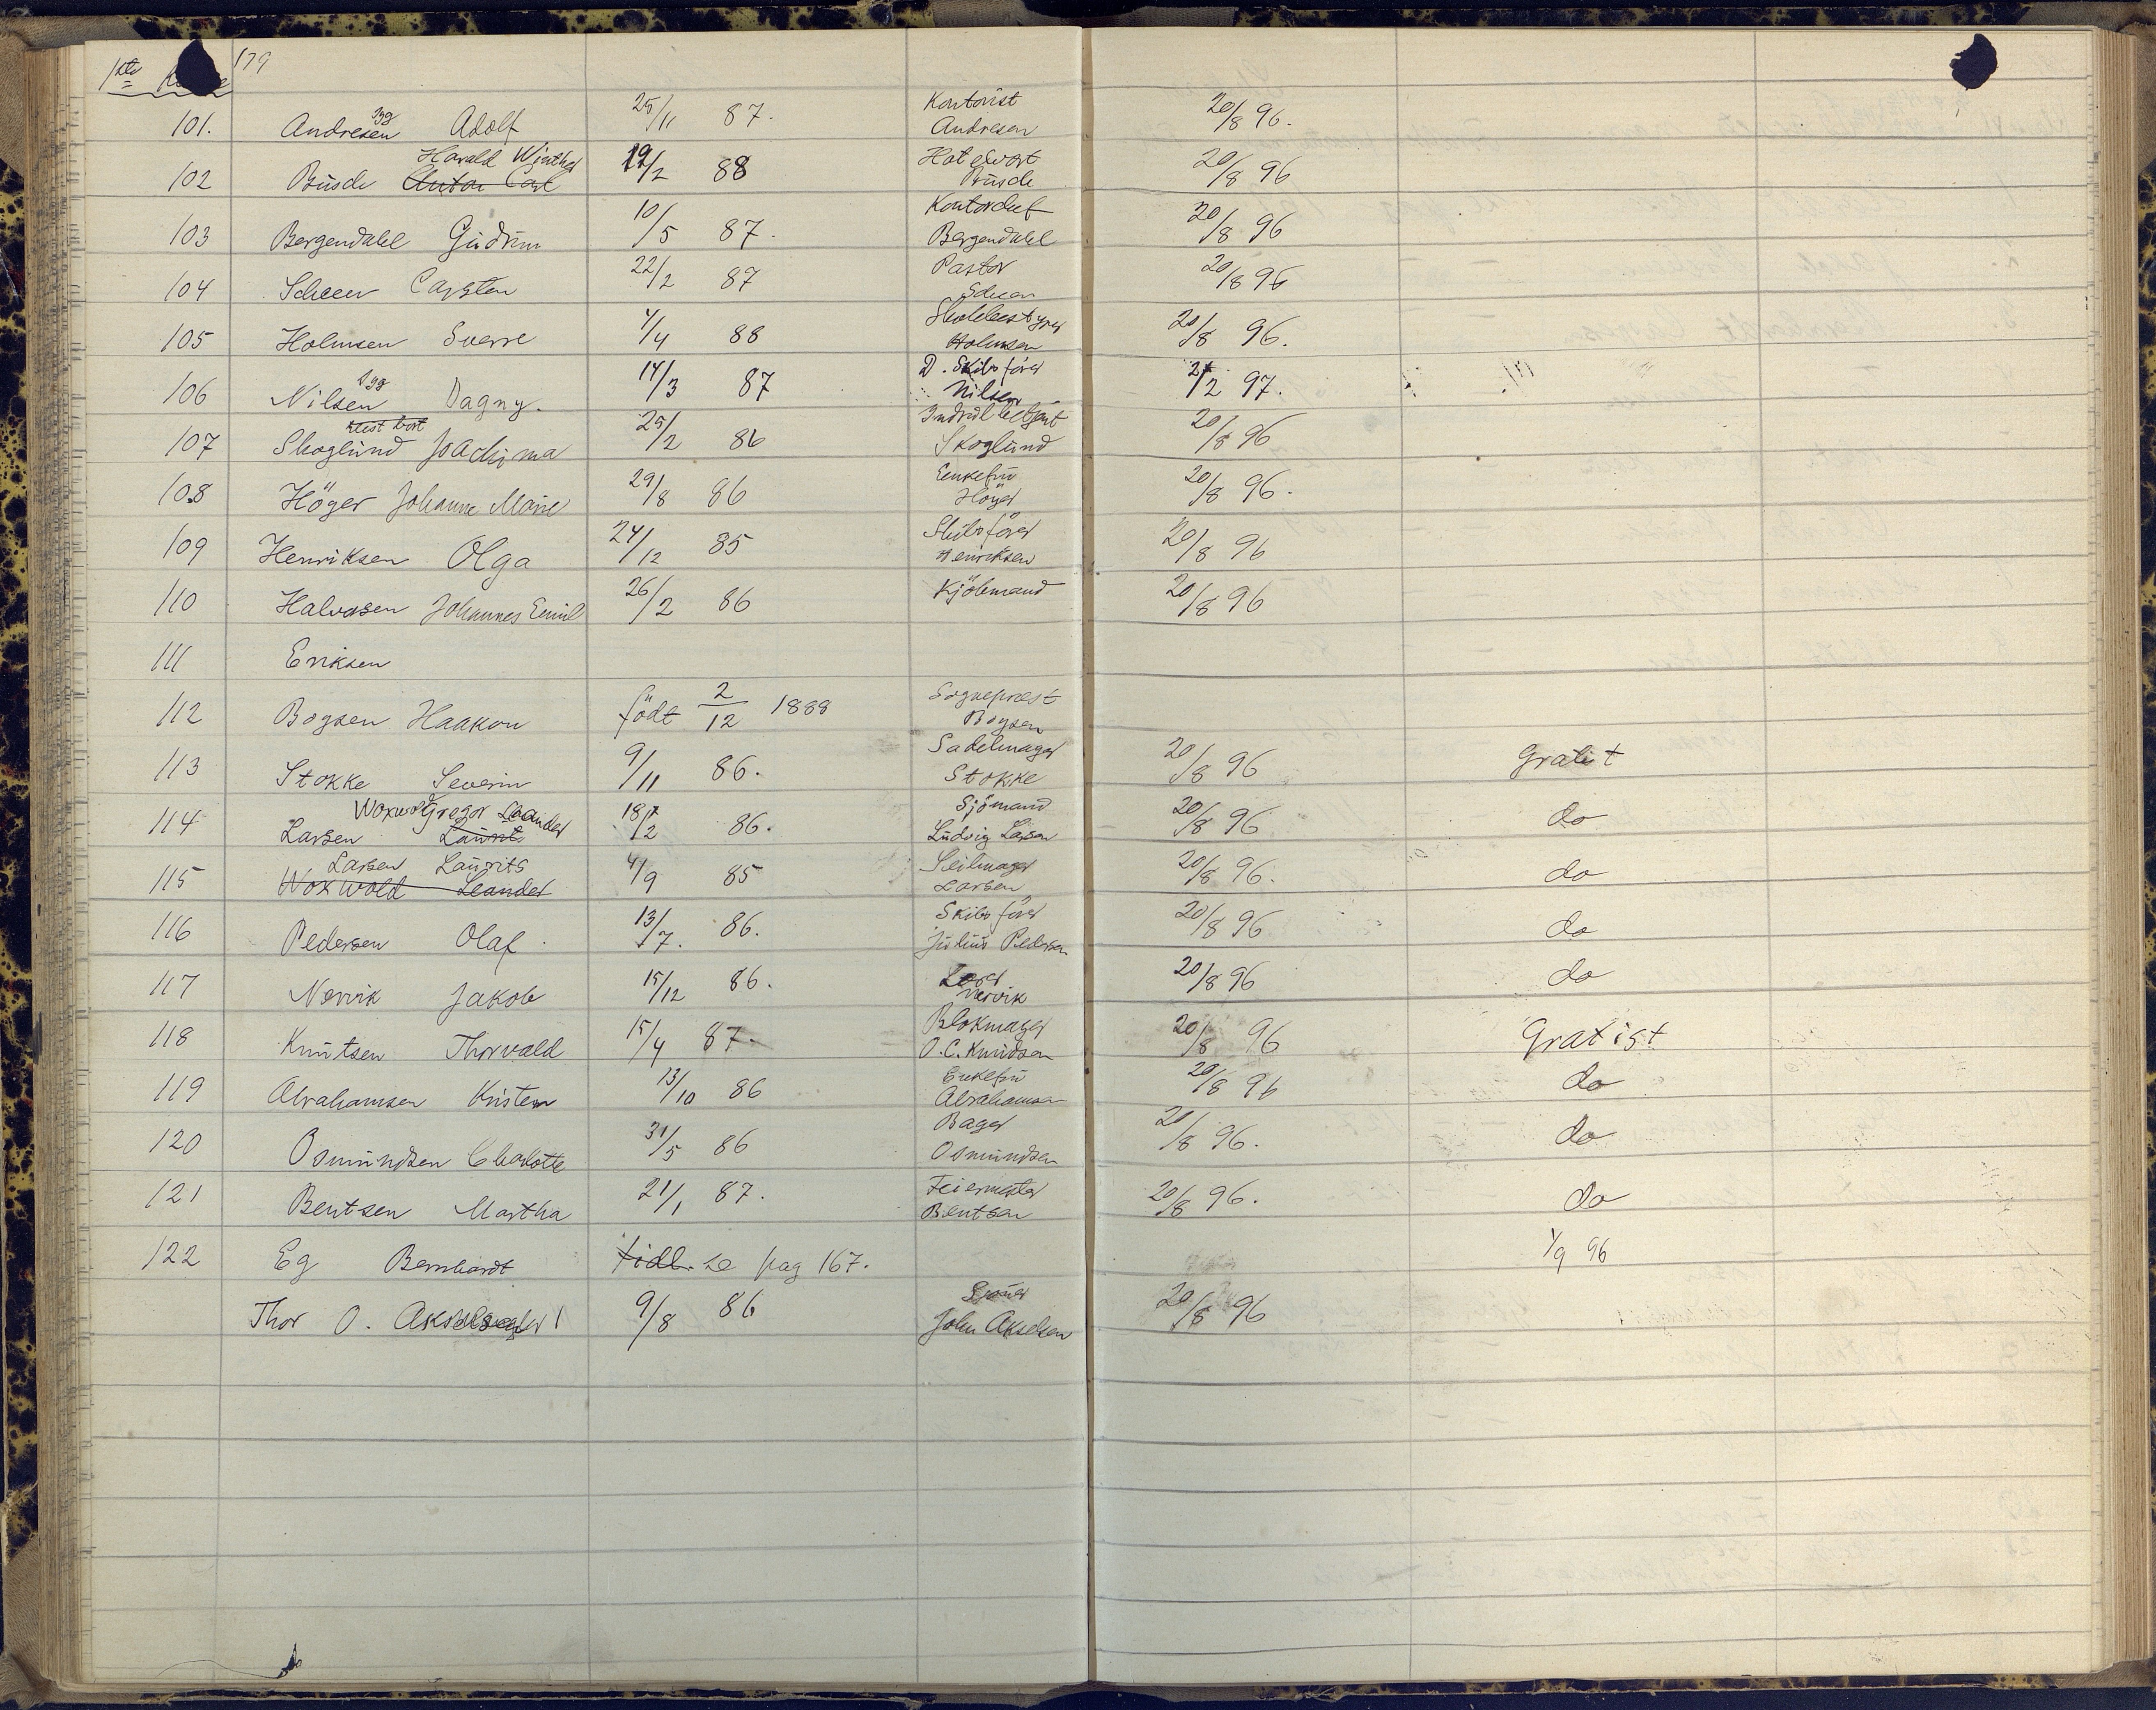 1ste 179
Kontorist
101. Andresen Adolf 25/11 87. Andresen 20/8 96.
Harald Winther Hotelvært
102 Büsch Anton Carl 19/2 88 Büsch 20/8 96
Kontorchef
103 Bergendahl Gudrun 10/5 87. Bergendahl 20/8 96
Pastor
104 Scheen Carsten 22/2 87 Scheen 20/8 96
Skolebestyrer
105 Holmsen Sverre 4/4 88 Holmsen 20/8 96.
D. Skibsfører
106 Nilsen Dagny. 14/3 87 Nilsen 2/2 97.
reist bort
107 Skoglund Joachima 25/2 86 Skoglund 20/8 96
Enkefru
108 Höyer Johanne Marie 29/8 86 Höyer 20/8 96.
Skibsförer
109 Henriksen Olga 24/12 85 Henriksen 20/8 96
110 Halvorsen Johannes Emil 26/2 86 Kjöbmand 20/8 96
111 Eriksen
Sogneprest
112 Boysen Haakon födt 2/12 1888 Boysen
Sadelmager
113 Stokke Severin 9/11 86. Stokke 20/8 96 Gratist
Woxwold Gregor Leander Sjömand
114 Larsen Laurits 18/2 86. Ludvig Larsen 20/8 96 do
Larsen Laurits Seilmager
115 Woxwold Leander 4/9 85 Larsen 20/8 96. do
Skibsförer
116 Pedersen Olaf 13/7. 86. Julius Pedersen 20/8 96 do
117 Nervik Jakob 15/12 86. Nervik 20/8 96 do
Blokmager
118 Knutsen Thorvald 15/4 87. O. C. Knudsen 20/8 96 Gratist
Enkefru
119 Abrahamsen Kristen 13/10 86 Abrahamsen 20/8 96 do
Bager
120 Osmundsen Charlotte 31/5 86 Osmundsen 20/8 96. do
Feiermester
121 Bentsen Martha 21/1 87. Bentsen 20/8 96. do
122 Eg Bernhardt tidl. se pag 167. 1/9 96
Thor O. Akselsen 9/8 86 John Akselsen 20/8 96